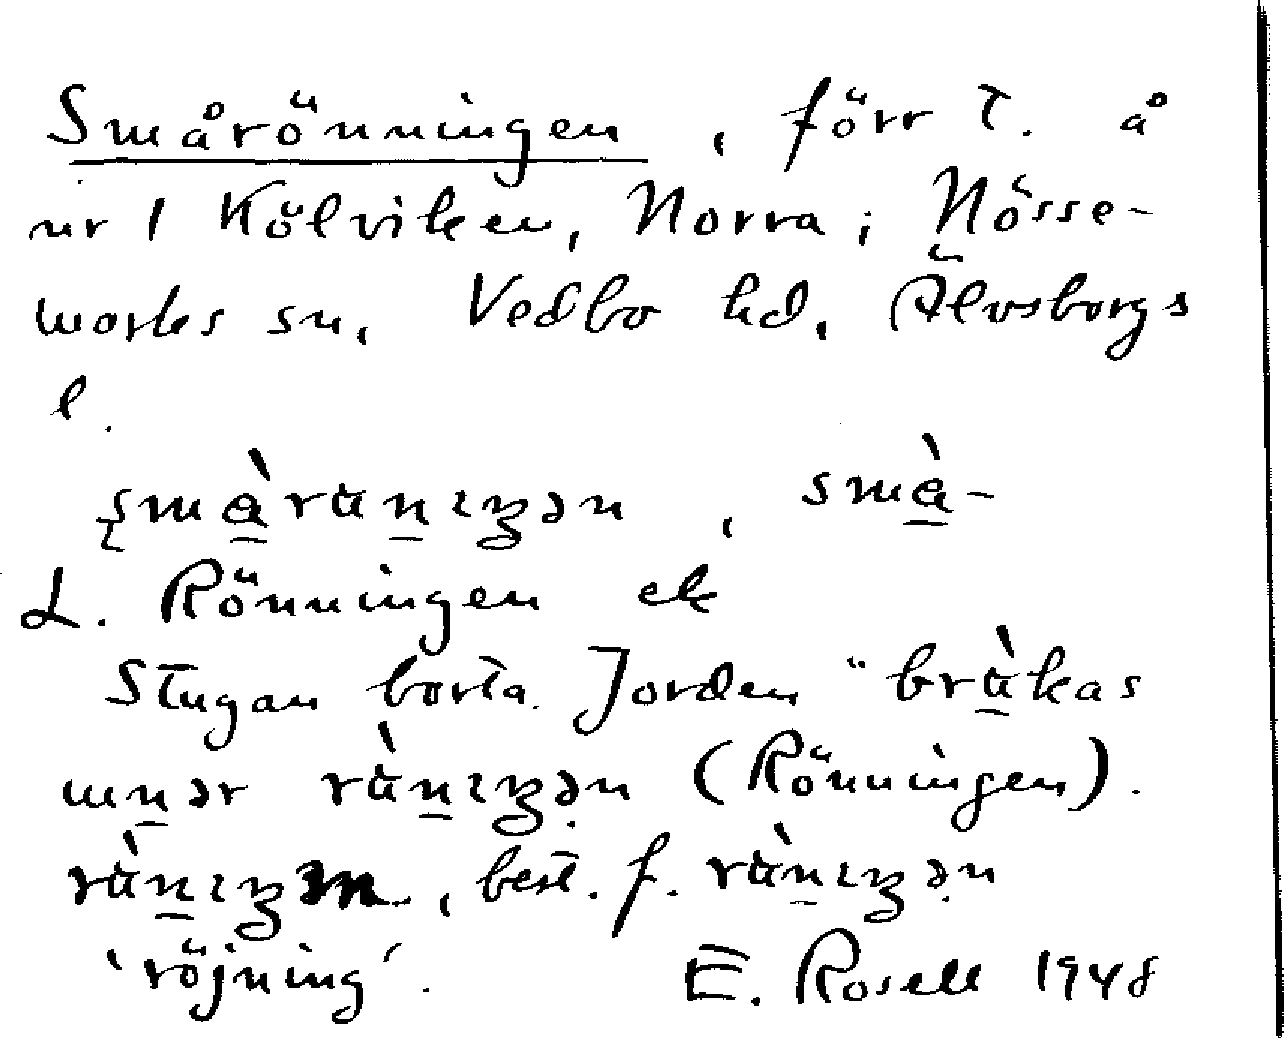 Smårönningen, förr t. å
nr 1 Kölviken, Norra; Nösse-
marks sn, Vedbo hd, Älvsborgs
l.
smà̠rün̠ıŋən, smà̠-
L. Rönningen ek
Stugan borta. Jorden "brǜ̠kas
un̠ər rǜn̠ıŋən (Rönningen).
rǜn̠ıŋ, best. f. rǜn̠ıŋən
'röjning'. E. Rosell 1948